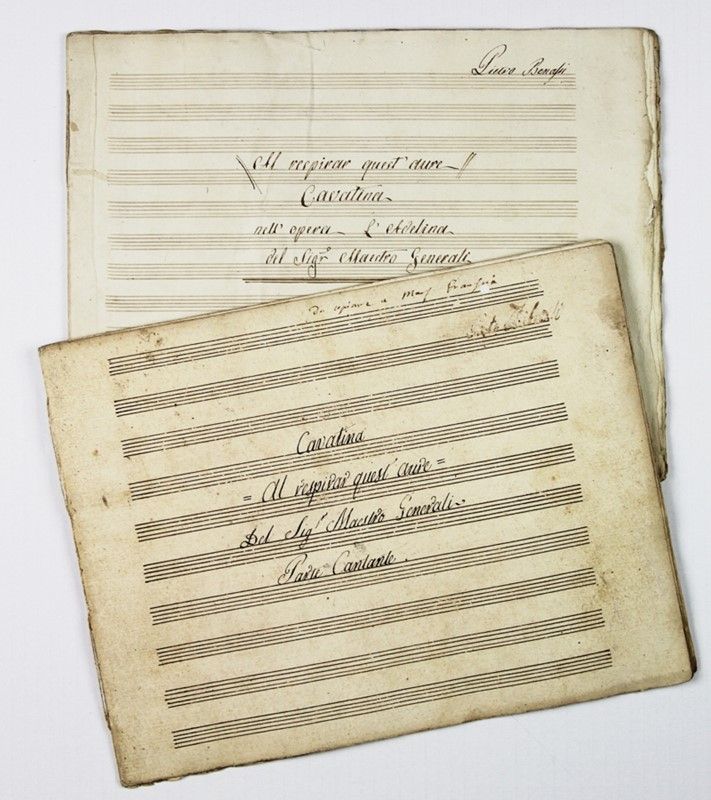 Pietro Benassi
Al respirar quest'aure
Cavatina
nell'opera L'Adelina
del Sigr. Maestro Generali
Da copiare a
Cavatina
= Al respirar quest'aure =
Del Sigr. Maestro Generali
Parte Cantante.